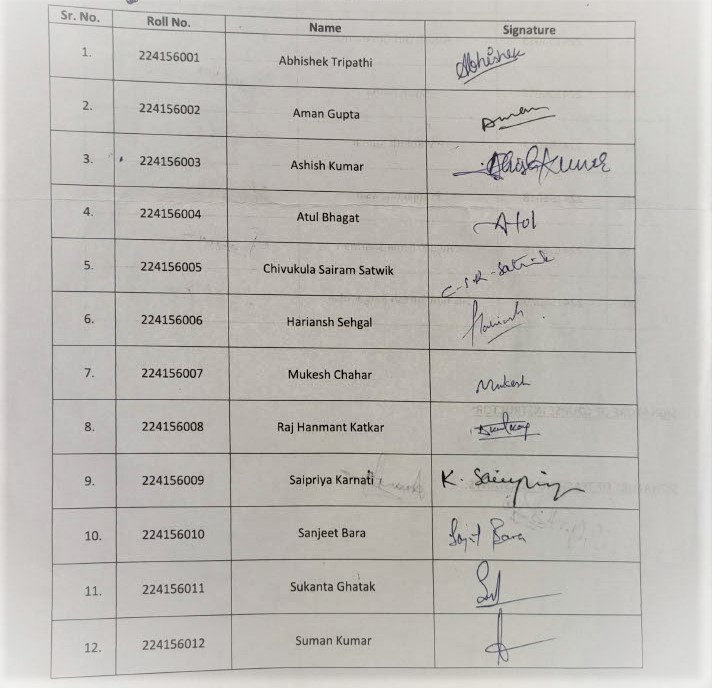 Sr. No. Roll No. Name Signature
1. 224156001 Abhishek Tripathi Abhishek
2. 224156002 Aman Gupta Aman
3. 224156003 Ashish Kumar Ashish Kumar
4. 224156004 Atul Bhagat Atul
5. 224156005 Chivukula Sairam Satwik C.S.R. Satwik
6. 224156006 Hariansh Sehgal Hariansh
7. 224156007 Mukesh Chahar Mukesh
8. 224156008 Raj Hanmant Katkar
9. 224156009 Saipriya Karnati K. Saipriya
10. 224156010 Sanjeet Bara Sanjit Bara
11. 224156011 Sukanta Ghatak
12. 224156012 Suman Kumar